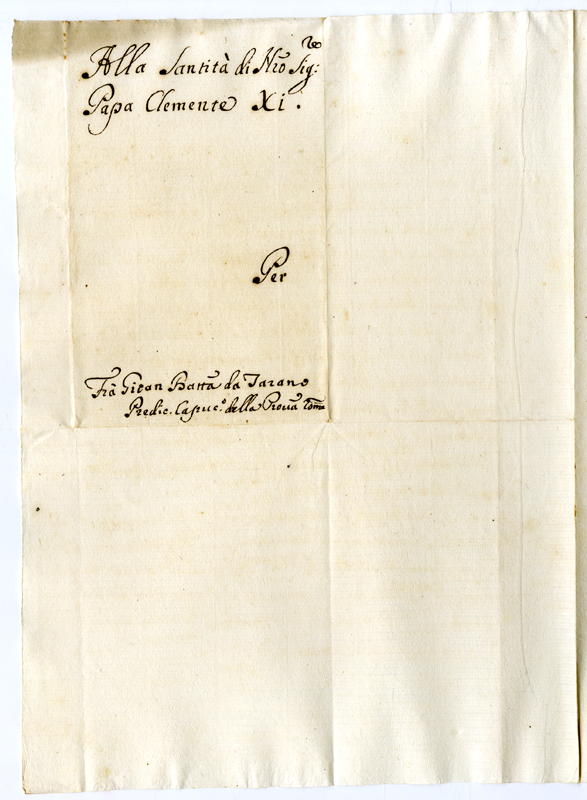 Alla Santità di Nrō Sig:re
Papa Clemente XI.
Per
Frà Gioan Battā da Tarano
Predic. Capuc.o della Prouā Romā